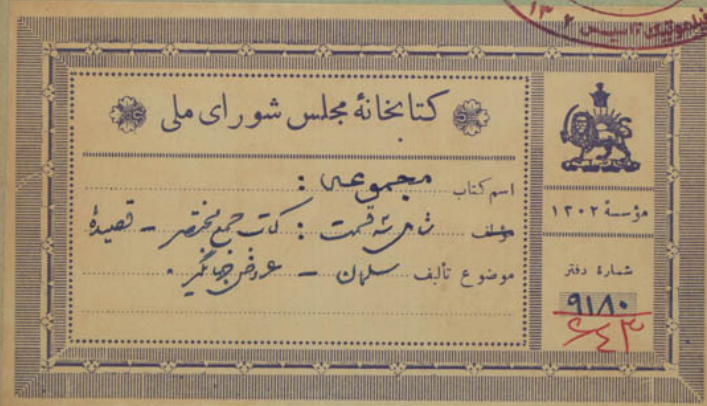 کتابخانهٔ مجلس شورای ملی
اسم کتاب مجموعه :
مؤلف شامل سه قسمت : کتاب جمع مختصر - قصیدهٔ
موضوع تألیف سلمان - عروض جهانگیر .
مؤسسهٔ ۱۳۰۲
شمارهٔ دفتر
۹۱۸۰
۶۴۳